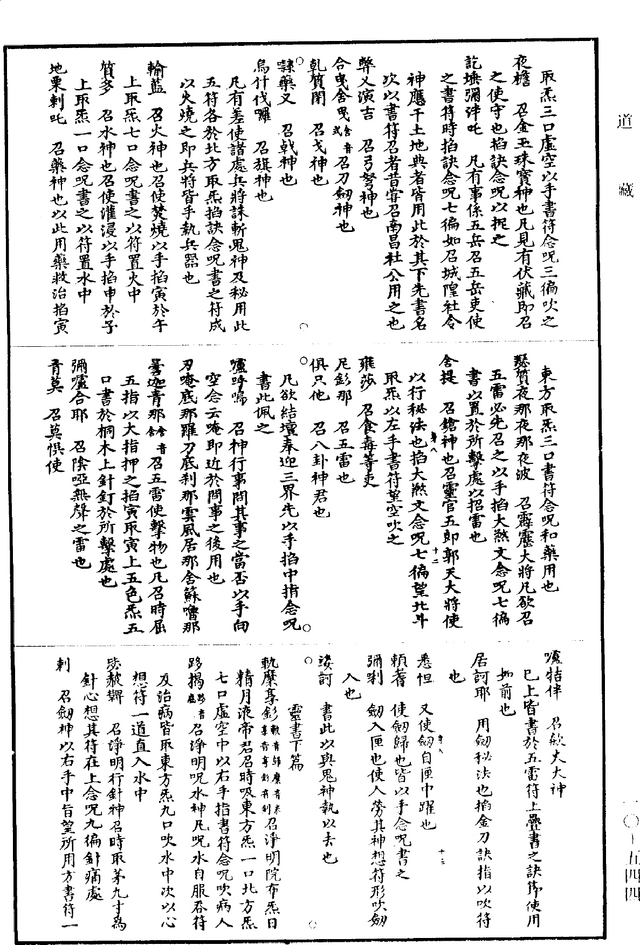 道藏
取炁三口虛空以手書符念呪三徧吹之
夜檐 召金玉珠寳神也凡見有伏藏即召
之使守也掐訣念呪以捉之
訖㙼彌泮吒 凡有事係五岳召五岳吏使
之書符時掐訣念呪七徧如召城隍社令
神應千土地典者皆用此於其下先書名
次以書符召者昔甞召南昌社公用之也
弊义演吉 召弓弩神也
合曳舍曳 召刀劔神也
乹質閑 召戈神也
隷藥叉 召戟神也
烏什伐囉 召旗神也
凡有差使諸處兵將誅斬鬼神及秘用此
五符各於北方取炁掐訣念呪書之符成
以火燒之即兵將皆手執兵器也
輸藍 召火神也召使焚燒以手掐寅於午
上取炁七口念呪書之以符置火中
質多 召水神也召使灌浸以手掐申於子
上取炁一口念呪書之以符置水中
地栗剌吒 召藥神也以此用藥救治掐寅
東方取炁三口書符念呪和藥用也
瑿質夜那夜那夜波 召霹靂大將凡欲召
五雷必先召之以手掐大煞文念呪七徧
書以置於所擊處以招雷也
舍提 召鎗神也召靈官五郎郭天大將使
以行秘法也掐大煞文念呪七徧望北斗
取炁以左手書符望空吹之
雍莎 召食毒等吏
尼彭那 召五雷也
俱只他 召八卦神君也
凡欲結壇奉迎三界先以手掐中指念呪
書此佩之
嚧呼㘁 召神行事問其事之當否以手向
空念云唵即近於問事之後用也
刃唵底那羅刃底利那雲風居那舍蘇嚕那
曇迦青那 召五雷使擊物也凡召時屈
五指以大指押之掐寅取寅上五色炁五
口書於桐木上針釘於所擊處也
彌嚧合耶 召陰啞無聲之雷也
青莫 召莫惧使
嚧牿伴 召欻火大神
巳上皆書於五雷符上疊書之訣節使用
如前也
居訶耶 用劔秘法也掐金刀訣指以吹符
也
悉怛 又使劔自匣中躍也
頼蓍 使劔歸也皆以手念呪書之
彌唎 劔入匣也使人勞其神想符形吹劔
入也
婆訶 書此以與鬼神執以去也
靈書下篇
執糜享彭 召淨明院布炁日
精月液帝君召時吸東方炁一口北方炁
七口虛空中以右手指書符念呪吹病人
跢揭 召淨明呪水神凡呪水自服吞符
及治病皆取東方炁九口吹水中次以心
想符一道直入水中
跢皴㘑 召淨明行針神召時取茅九寸爲
針心想其符在上念呪九徧針痛處
剌 召劔神以右手中旨望所用方書符一
一〇－五四四